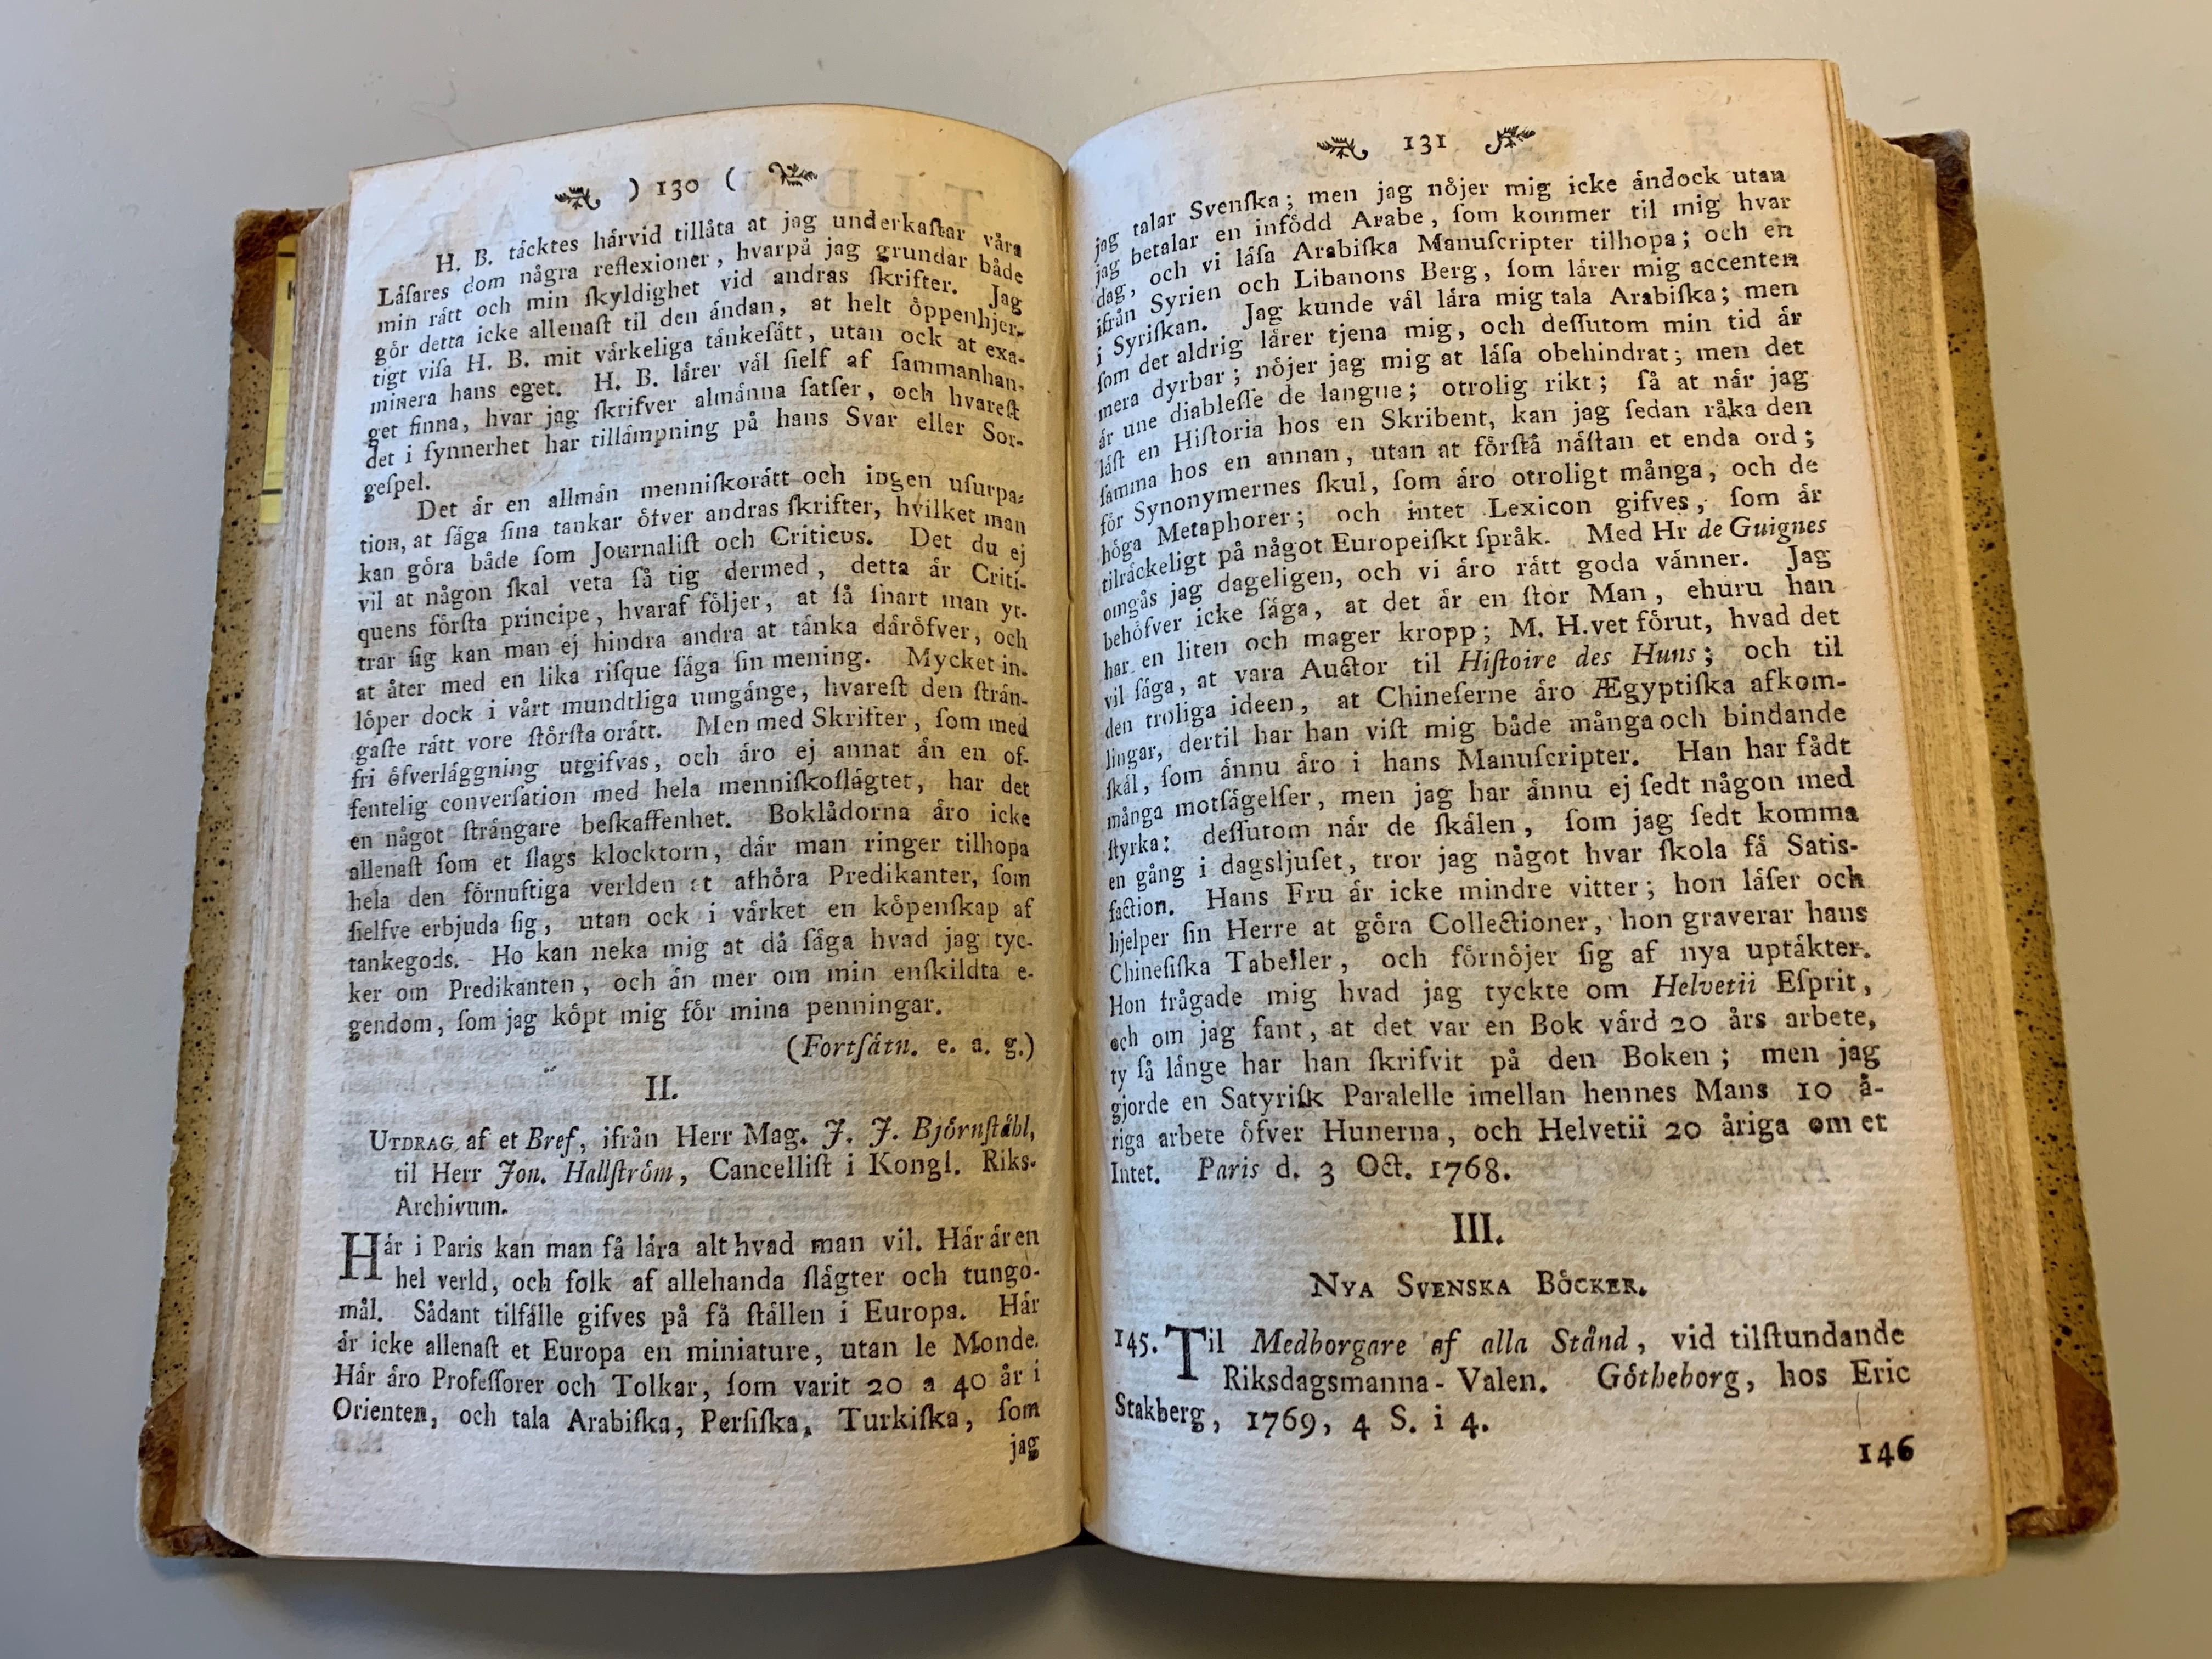 ) 130 (
H. B. täcktes härvid tillåta at jag underkaſtar våra
Läſares dom några reflexioner, hvarpå jag grundar både
min rätt och min ſkyldighet vid andras ſkrifter. Jag
gör detta icke allenaſt til den ändan, at helt öppenhjer-
tigt viſa H. B. mit värkeliga tänkeſätt, utan ock at exa-
minera hans eget. H. B. lärer väl ſielf af ſammanhan-
get finna, hvar jag ſkrifver almänna ſatſer, och hvareſt
det i ſynnerhet har tillämpning på hans Svar eller Sor-
geſpel.
Det är en allmän menniſkorätt och ingen uſurpa-
tion, at ſäga ſina tankar öfver andras ſkrifter, hvilket man
kan göra både ſom Journaliſt och Criticus. Det du ej
vil at någon ſkal veta ſå tig dermed, detta är Criti-
quens förſta principe, hvaraf följer, at ſå ſnart man yt-
trar ſig kan man ej hindra andra at tänka däröfver, och
at åter med en lika riſque ſäga ſin mening. Mycket in-
löper dock i vårt mundtliga umgänge, hvareſt den ſträn-
gaſte rätt vore ſtörſta orätt. Men med Skrifter, ſom med
fri öfverläggning utgifvas, och äro ej annat än en of-
fentelig converſation med hela menniſkoſlägtet, har det
en något ſträngare beſkaffenhet. Boklådorna äro icke
allenaſt ſom et ſlags klocktorn, där man ringer tilhopa
hela den förnuftiga verlden at afhöra Predikanter, ſom
ſielfve erbjuda ſig, utan ock i värket en köpenſkap af
tankegods. Ho kan neka mig at då ſäga hvad jag tyc-
ker om Predikanten, och än mer om min enſkildta e-
gendom, ſom jag köpt mig för mina penningar.
(Fortſätn. e. a. g.)
II.
UTDRAG af et Bref, ifrån Herr Mag. J. J. Björnſtåhl,
til Herr Jon. Hallſtröm, Cancelliſt i Kongl. Riks-
Archivum.
Här i Paris kan man få lära alt hvad man vil. Här är en
hel verld, och folk af allehanda ſlägter och tungo-
mål. Sådant tilfälle gifves på få ſtällen i Europa. Här
är icke allenaſt et Europa en miniature, utan le Monde.
Här äro Profeſſorer och Tolkar, ſom varit 20 a 40 år i
Orienten, och tala Arabiſka, Perſiſka, Turkiſka, ſom
jag
131
jag talar Svenſka; men jag nöjer mig icke ändock utan
jag betalar en infödd Arabe, ſom kommer til mig hvar
dag, och vi läſa Arabiſka Manuſcripter tilhopa; och en
ifrån Syrien och Libanons Berg, ſom lärer mig accenten
i Syriſkan. Jag kunde väl lära mig tala Arabiſka; men
ſom det aldrig lärer tjena mig, och deſſutom min tid är
mera dyrbar; nöjer jag mig at läſa obehindrat; men det
är une diableſſe de langue; otrolig rikt; ſå at när jag
läſt en Hiſtoria hos en Skribent, kan jag ſedan råka den
ſamma hos en annan, utan at förſtå näſtan et enda ord;
för Synonymernes ſkul, ſom äro otroligt många, och de
höga Metaphorer; och intet Lexicon gifves, ſom är
tilräckeligt på något Europeiſkt ſpråk. Med Hr de Guignes
omgås jag dageligen, och vi äro rätt goda vänner. Jag
behöfver icke ſäga, at det är en ſtor Man, ehuru han
har en liten och mager kropp; M. H. vet förut, hvad det
vil ſäga, at vara Auctor til Hiſtoire des Huns; och til
den troliga ideen, at Chineſerne äro Ægyptiſka afkom-
lingar, dertil har han viſt mig både många och bindande
ſkäl, ſom ännu äro i hans Manuſcripter. Han har fådt
många motſägelſer, men jag har ännu ej ſedt någon med
ſtyrka: deſſutom när de ſkälen, ſom jag ſedt komma
en gång i dagsljuſet, tror jag något hvar ſkola få Satis-
faction. Hans Fru är icke mindre vitter; hon läſer och
hjelper ſin Herre at göra Collectioner, hon graverar hans
Chineſiſka Tabeller, och förnöjer ſig af nya uptäkter.
Hon frågade mig hvad jag tyckte om Helvetii Eſprit,
och om jag fant, at det var en Bok värd 20 års arbete,
ty ſå länge har han ſkrifvit på den Boken; men jag
gjorde en Satyriſk Paralelle imellan hennes Mans 10 å-
riga arbete öfver Hunerna, och Helvetii 20 åriga om et
Intet. Paris d. 3 Oct. 1768.
III.
NYA SVENSKA BÖCKER.
145. Til Medborgare af alla Stånd, vid tilſtundande
Riksdagsmanna-Valen. Götheborg, hos Eric
Stakberg, 1769, 4 S. i 4.
146